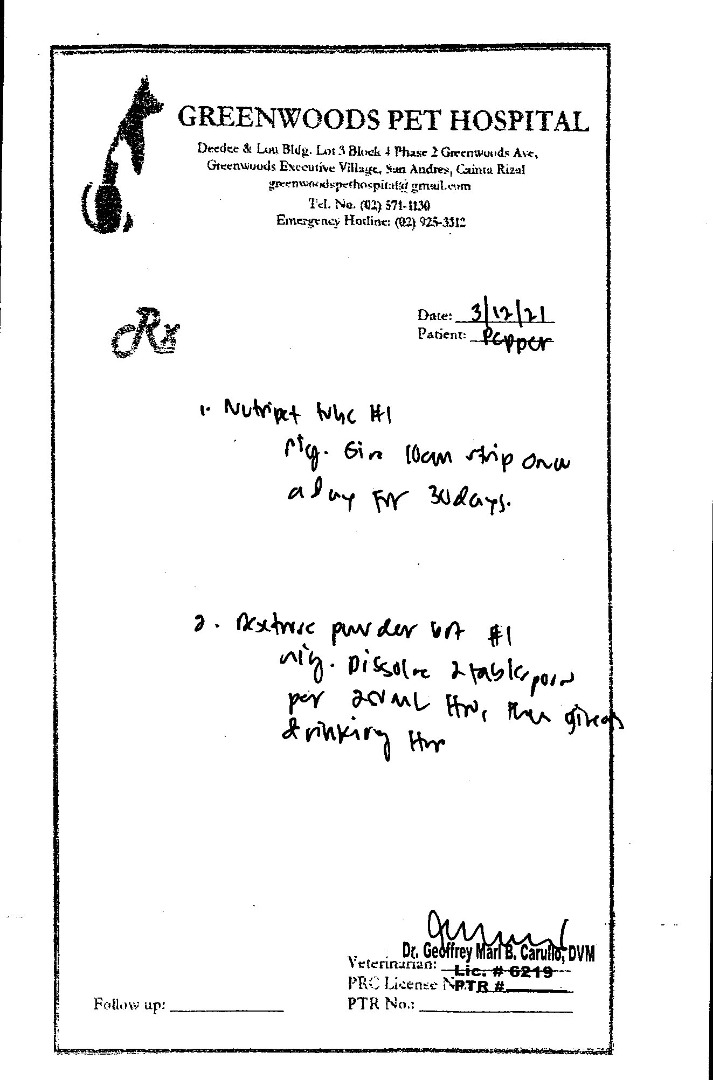 GREENWOODS PET HOSPITAL
Deedee & Lou Bldg. Lot 3 Block 4 Phase 2 Greenwoods Ave,
Greenwoods Executive Village, San Andres, Cainta Rizal
greenwoodspethospital@gmail.com
Tel. No. (02) 571-1130
Emergency Hotline: (02) 925-3312
Rx
Date: 3/12/21
Patient: Pepper
1. Nutripet tube #1
sig. Give 10cm strip once
a day for 30 days.
2. Dextrose powder #1
sig. Dissolve 2 tablespoon
per, then give as
drinking
Dr. Geoffrey Marl B. Carullo, DVM
Veterinarian: Lic. # 6219
PRC License N PTR #
Follow up:
PTR No.: